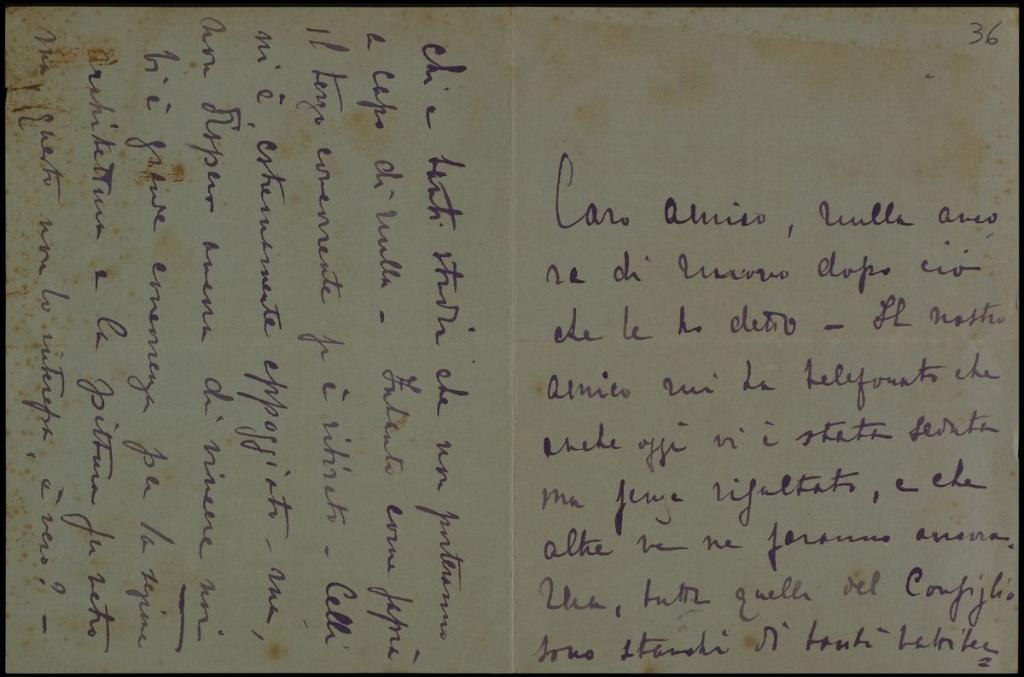 36
Caro amico, nulla anco
ra di nuovo dopo ciò
che le ho detto – Il nostro
amico mi ha telefonato che
anche oggi vi è stata seduta
ma senza risultato, e che
altre ve ne faranno ancora.
Ma, tutti quelli del Consiglio
sono stanchi di tanti battibec=
chi e tanti studi che non porteranno
a capo di nulla – Intanto come saprà
il terzo concorrente si è ritirato – Celli
ni è, estremamente appoggiato – ma,
non dispero ancora di vincere noi
Vi è grande concorrenza per la sezione
architettura e la pittura su vetro
ma questo non lo interessa, è vero? –